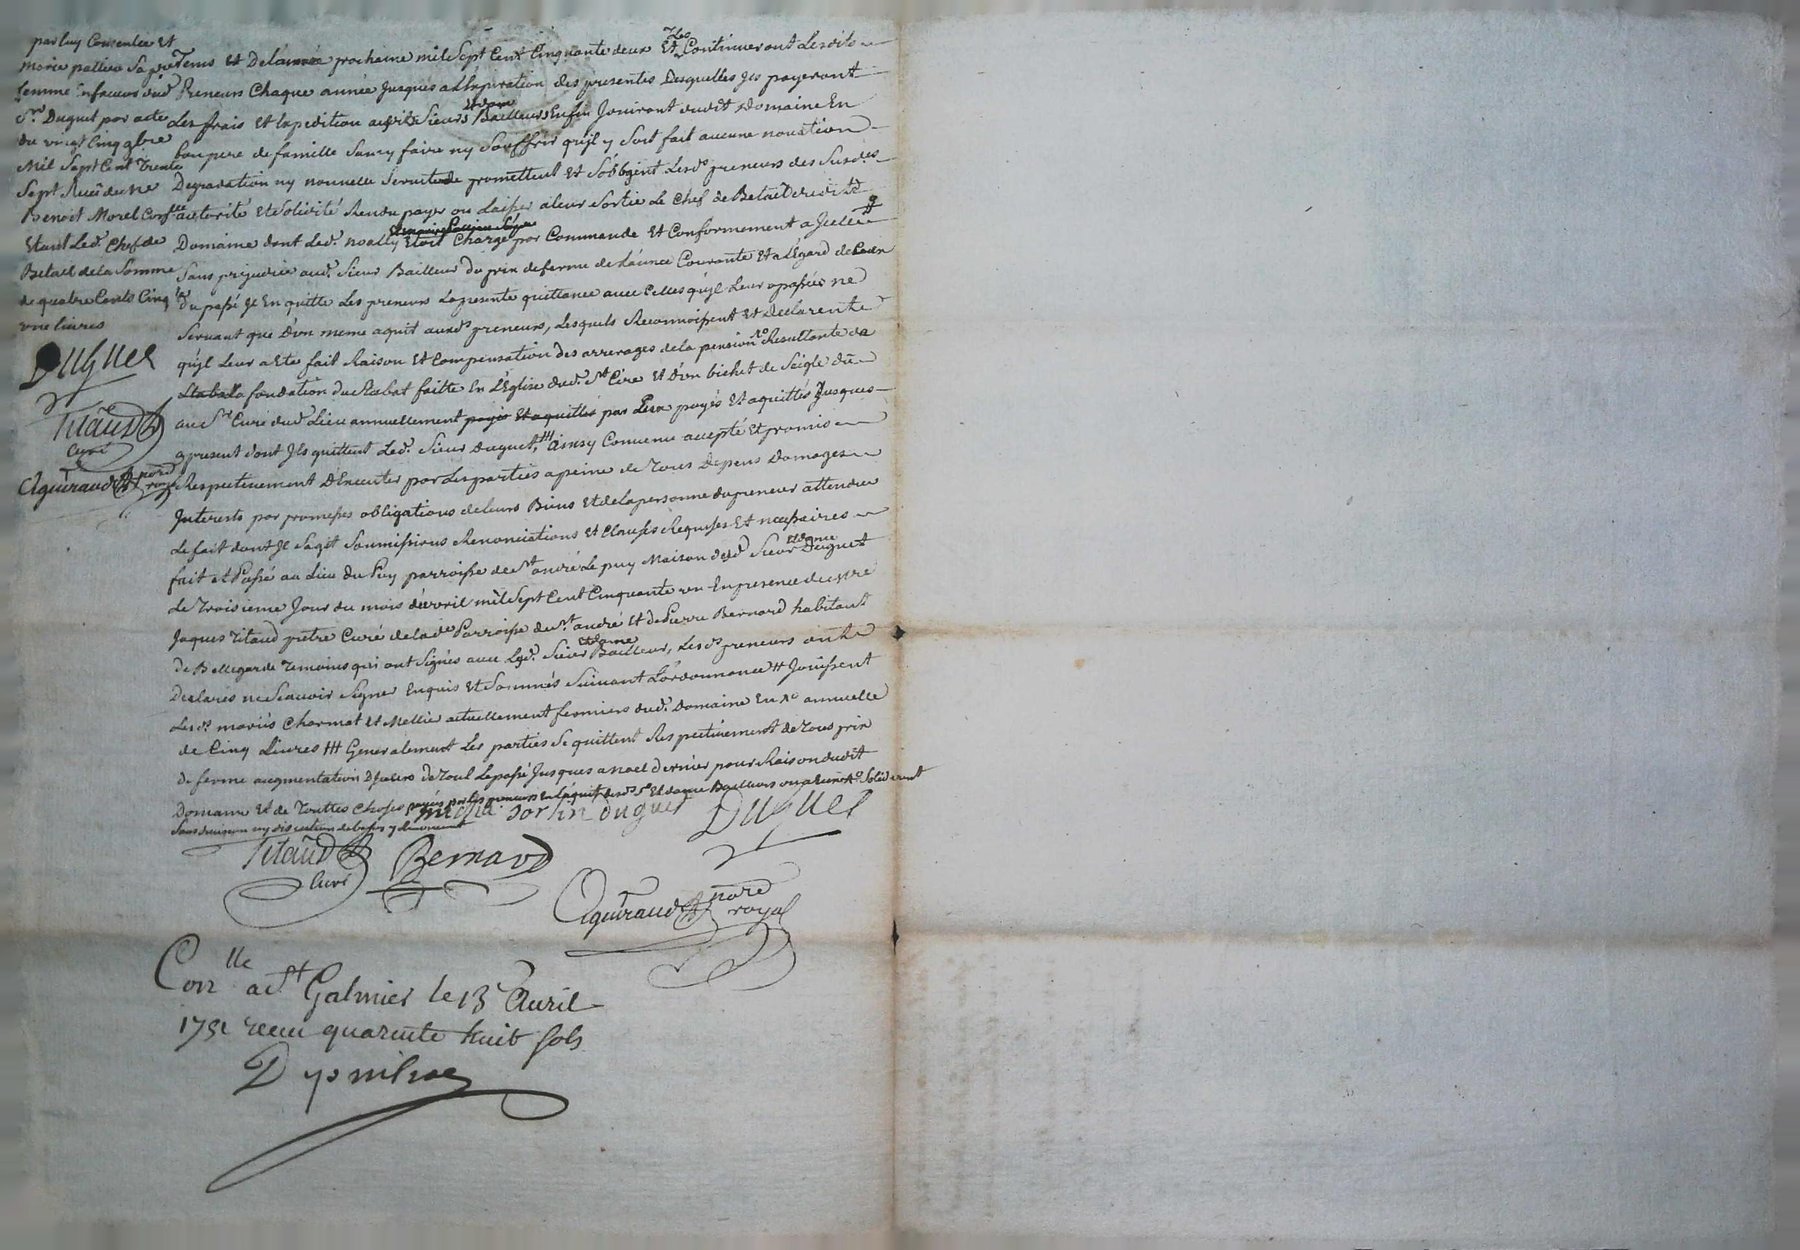 par luy Consentie Et
marie pallieu Sa
femme Enfaveur dud.
Sr. Duguet par acte
du vingt Cinq 9bre
Mil Sept Cent Trente
Sept Receü de Me
Benoit Morel
Etant Led. Chef de
Betail de la Somme
de quatre Cents Cinq te
une livres
Duguet
Titaud
Curé
Aguiraud nore royal
Tems Et De prochaine mil Sept Cent Cinquante deux Et Continueront Lesdits
Preneurs Chaque année Jusques a L'Expiration des presentes Desquelles Jls payeront
Les frais Et Expedition Sieurs Et dame Bailleurs Enfin Jouiront dudit Domaine En
bon pere de famille Sans y faire ny Souffrir qu'jl y Soit fait aucune novation
Degradation ny nouvelle Servitude promettent Et S'obligent Lesds. preneurs
autorité Et Solidité Rendre payer ou Laisser a leur Sortie Le Chef de Betail dudit
Domaine dont Led. noally Etoit Chargé par Commande Et Conformement a Jcelle
Sans prejudice aud. Sieur Bailleur du prix de ferme de L'année Courante Et a L'Egard de
du passé Je En quitte Les preneurs La presente quittance avec Celles qu'jl Leur a passées ne
Servant que D'un meme aquit auxds. preneurs, Lesquels Reconnoissent Et Declarent
qu'jl Leur a Eté fait Raison Et Compensation des arrerages de la pension Resultante de
La fondation du Stabat faitte En L'Eglise dud. St. Cire Et D'un bichet de Seigle dû
au Sr. Curé dud. Lieu annuellement payés Et aquittés par Eux payés Et aquittés Jusques
a present dont Jls quittent Led. Sieur Duguet, ttt ainsy Convenu accepté Et promis
Respectivement D'Executer par Les parties a peine de Tous Depens Domages
Jnterests par promesses obligations de Leurs Biens Et de La personne du preneur attendu
Le fait dont Jl S'agit Soumissions Renonciations Et Clauses Requises Et necessaires
fait Et Passé au Lieu du Puy parroisse de St. andré Le puy Maison dud. Sieur Et dame Duguet
Le Troisieme Jour du mois d'avril mil Sept Cent Cinquante un En presence de
Jaques Titaud pretre Curé de lad. Parroisse de St. andré Et de Pierre Bernard habitant
de Bellegarde Temoins qui ont Signés avec Led. Sieur Et dame Bailleur, Les ds. preneurs ont
Declarés ne Scavoir Signer Enquis Et Sommés Suivant L'ordonnance tt Jouissent
Les ds. mariés Charmat Et Mellier actuellement fermiers dud. Domaine annuelle
de Cinq Livres ttt Generalement Les parties Se quittent Respectivement de Tous prix
de ferme augmentation D'jceluy de Tout Le passé Jusques a noel dernier pour Raison dudit
Domaine Et de Touttes Choses payés par Les preneurs En L'aquit desds. Sr. Et dame Bailleurs
Sans division ny discution de biens y Renoncent
Dorlin duguet
Duguet
Titaud
Curé
Bernard
Aguiraud nore
royal
Conlle a St Galmier le 13e Avril
1751 receu quarente huit sols